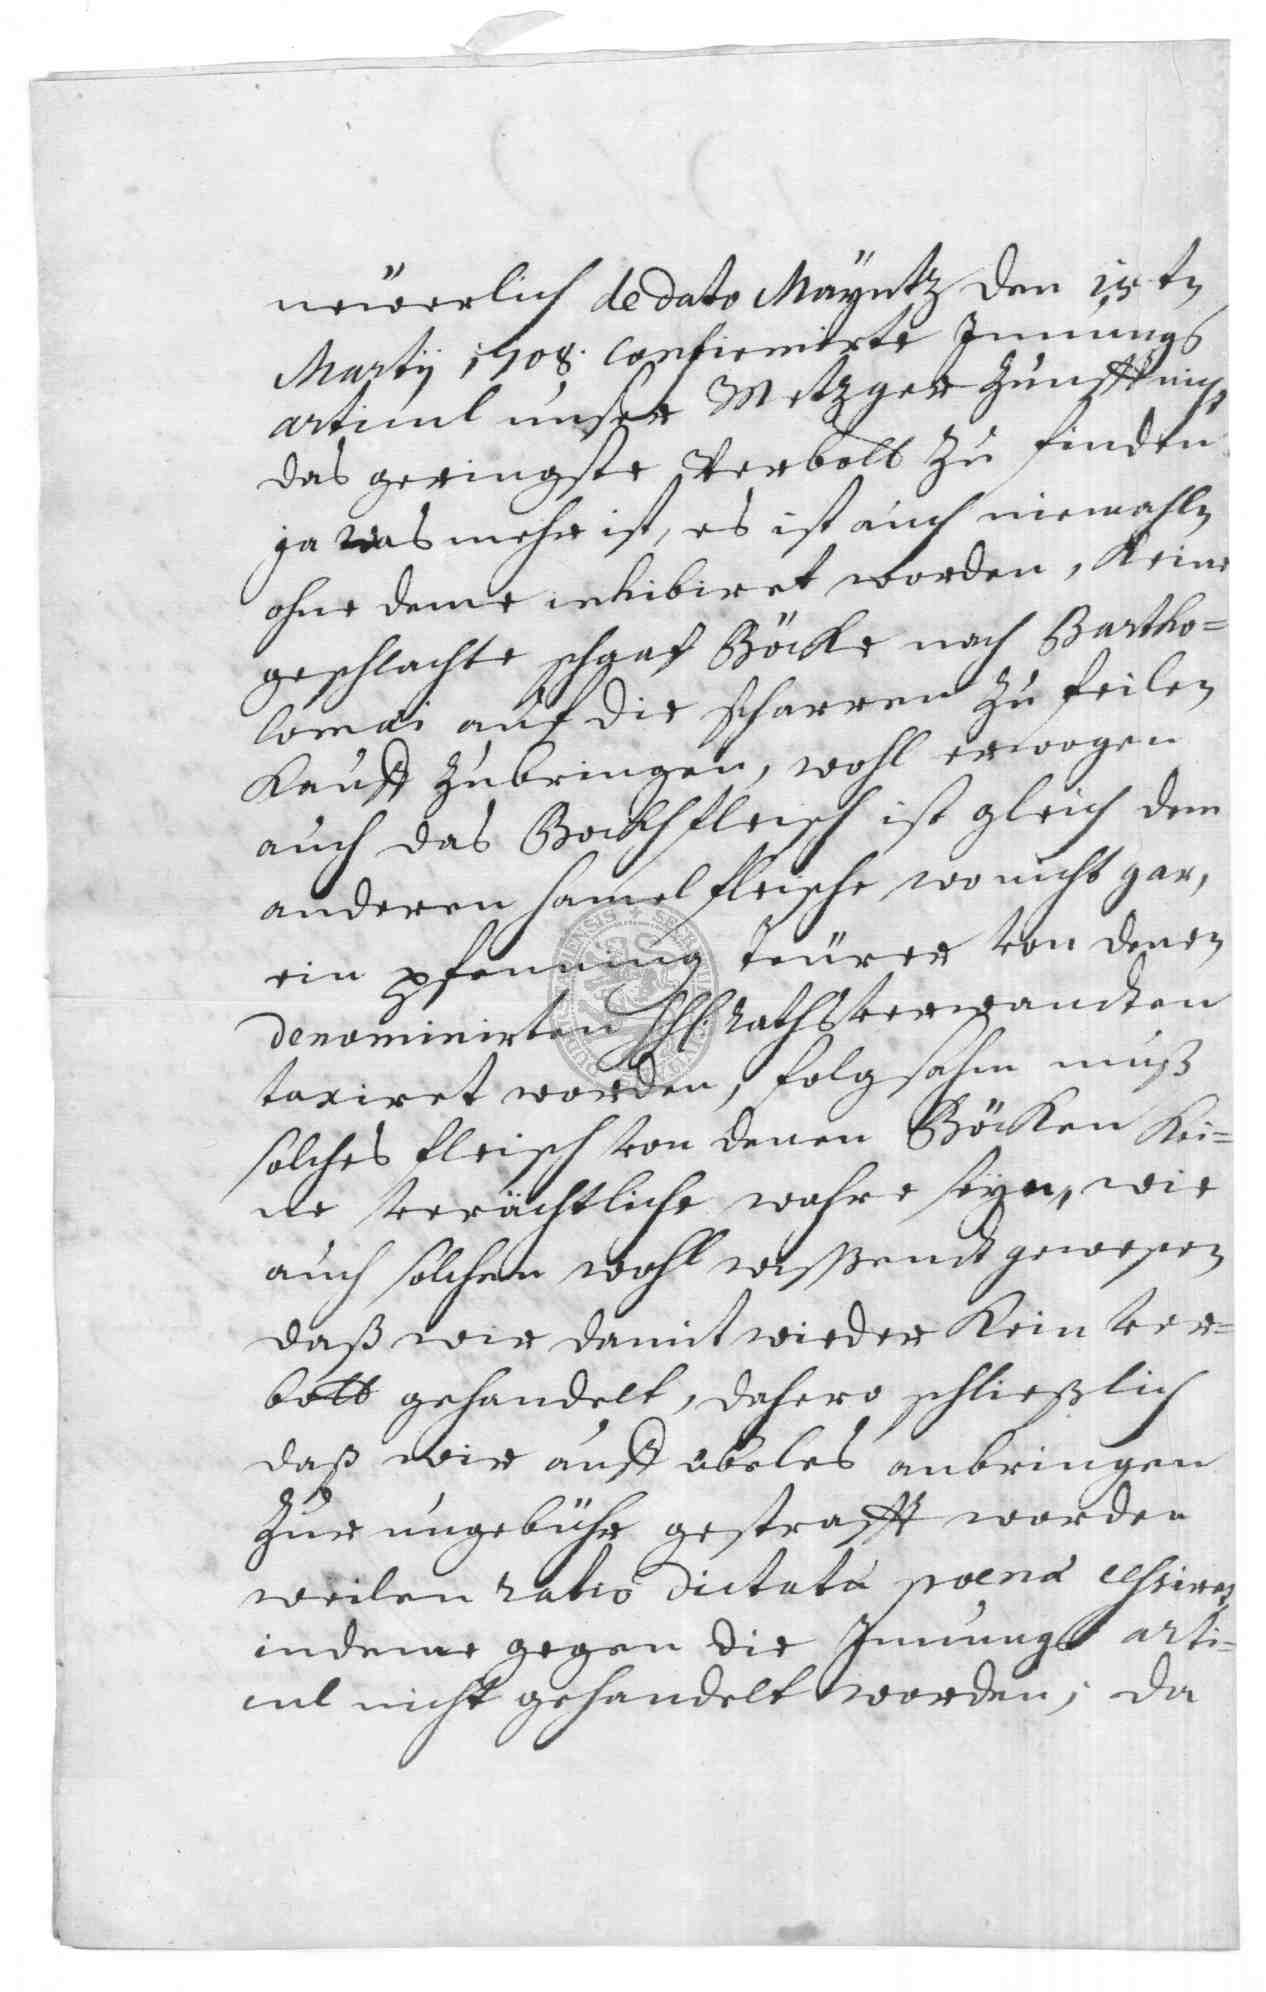 neüerlich de dato Mäyntz den 15tn
Martij 1708. confirmirte Innungs
articul unser Metzger Zunfft nicht
das geringste Verbott zu finden
ja was mehr ist, es ist auch niemahln
ohne deme inhibiret worden, Keine
geschlachte schaaf Böcke nach Bartho=
lomäi auf die scharren zu feilen
Kauff zubringen, wohl erwogen
auch das Bockfleisch ist gleich dem
anderen hamelfleische wo nicht gar,
ein pfenning teürer von denen
denominirten HH. Rathsverwandten
taxiret worden, folgsahm muß
solches fleisch von denen Böcken Kei=
ne verächtliche wahre seyn, wie
auch solchen wohl wißend gewesen
daß wir damit wieder Kein ver=
bott gehandelt, dahero schließlich
daß wir auff übeles anbringen
Zur ungebühr gestrafft worden
weilen ratio dictata poena
indeme gegen die Innungs arti=
cul nicht gehandelt worden, da
SIGILLUM CIVITATIS